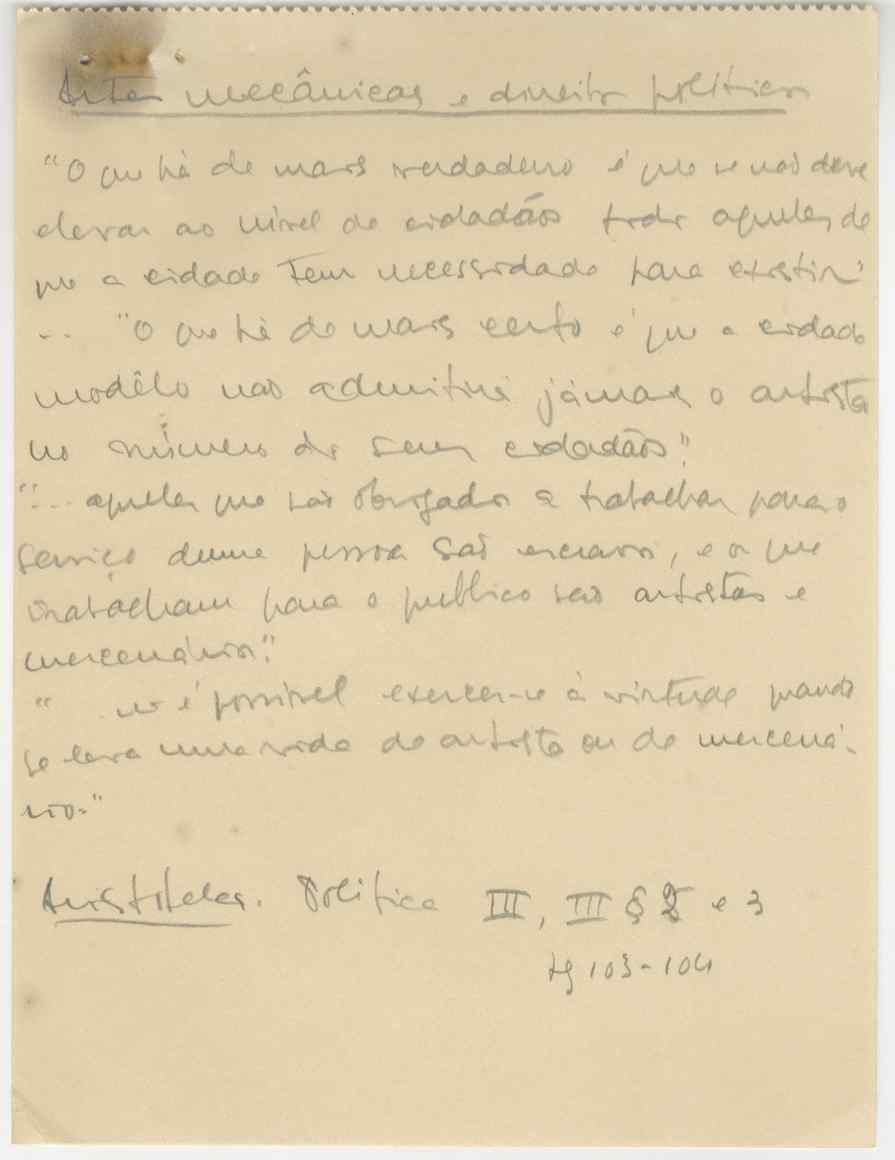 Artes mecânicas e direito político
"O que há de mais verdadeiro é que se não deve
elevar ao nível de cidadãos todos aqueles de
que a cidade tem necessidade para existir"
... "O que há de mais certo é que a cidade
modêlo não admitirá jámais o artista
no número de seus cidadãos".
"... aqueles que são obrigados a trabalhar para o
serviço duma pessoa são escravos, e os que
trabalham para o publico são artistas e
mercenários".
" é possível exercer-se à virtude quando
se leva uma vida de artista ou de mercená-
rio."
Aristoteles. Politica III, III § 2 e 3
pg 103-104